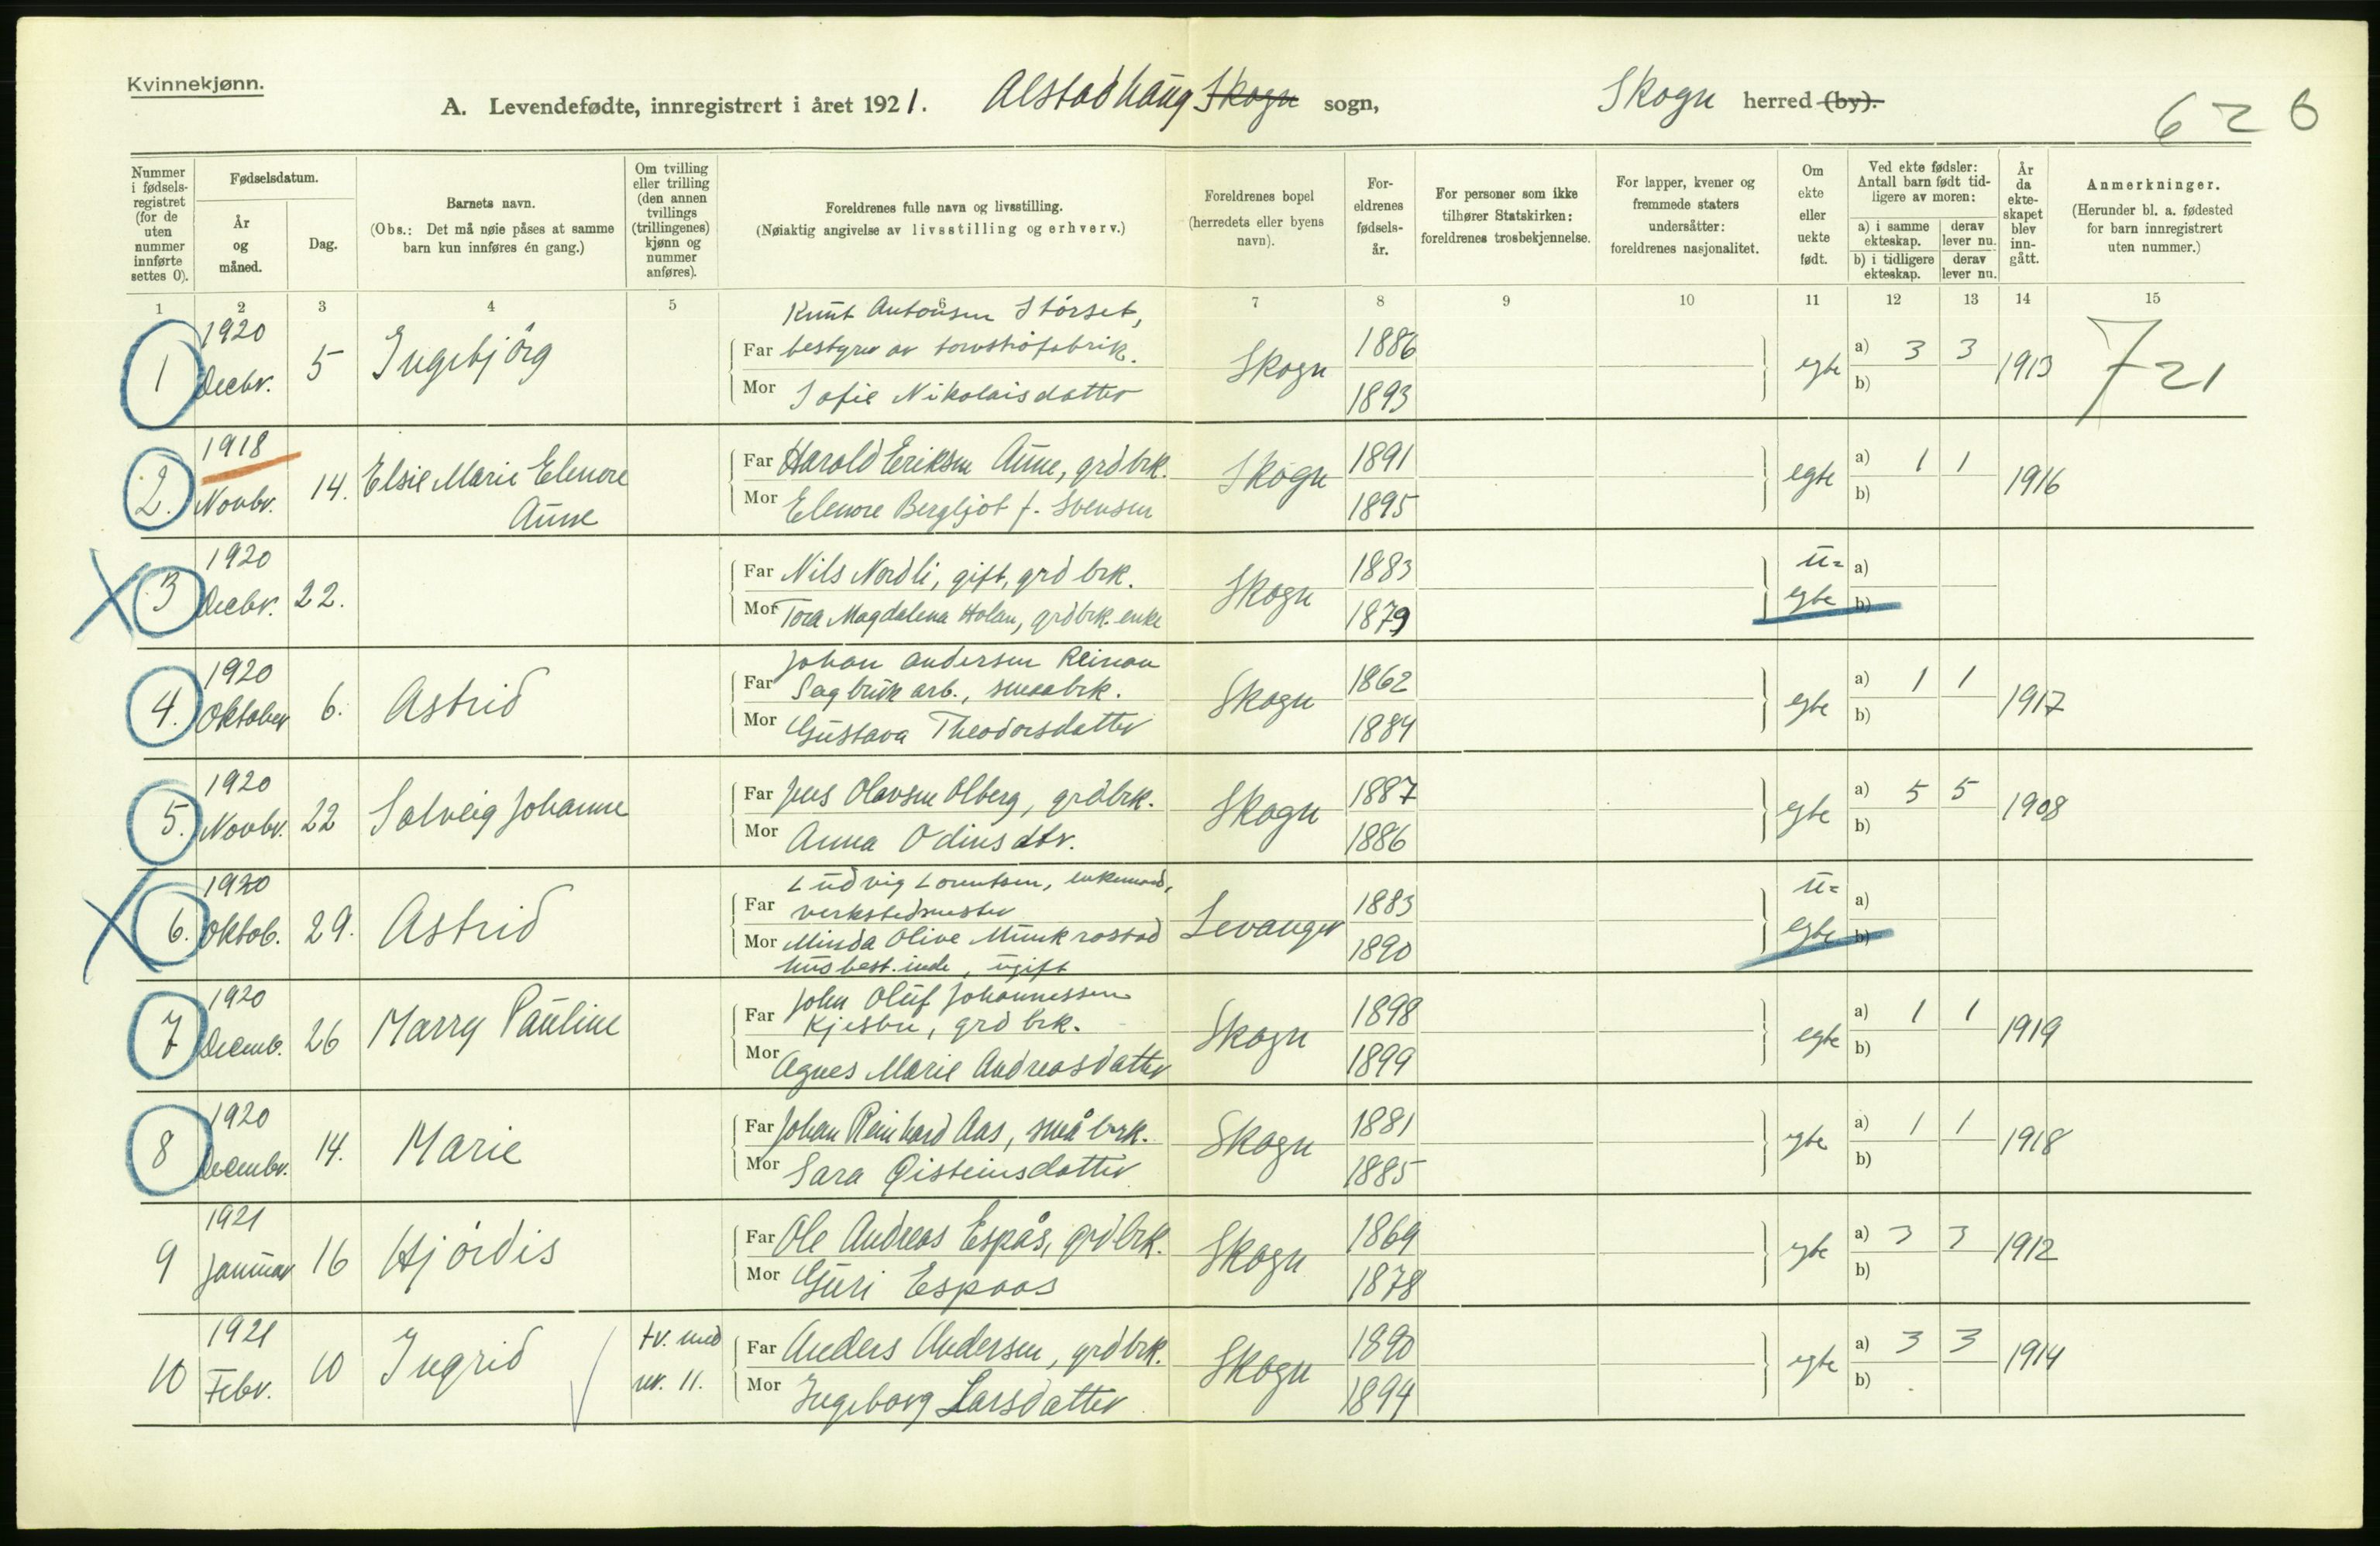 Kvinnekjønn.
A. Levendefødte, innregistrert i året 1921. Alstadhaug Skogn sogn, Skogn herred (by).
6 2 6
Nummer i fødselsregistret (for de uten nummer innførte settes 0).
Fødselsdatum.
År og måned.
Dag.
Barnets navn.
(Obs.: Det må nøie påses at samme barn kun innføres én gang.)
Om tvilling eller trilling (den annen tvillings (trillingenes) kjønn og nummer anføres).
Foreldrenes fulle navn og livsstilling.
(Nøiaktig angivelse av livsstilling og erhverv.)
Foreldrenes bopel (herredets eller byens navn).
Foreldrenes fødselsår.
For personer som ikke tilhører Statskirken: foreldrenes trosbekjennelse.
For lapper, kvener og fremmede staters undersåtter: foreldrenes nasjonalitet.
Om ekte eller uekte født.
Ved ekte fødsler: Antall barn født tidligere av moren:
a) i samme ekteskap. derav lever nu.
b) i tidligere ekteskap. derav lever nu.
År da ekteskapet blev inngått.
Anmerkninger.
(Herunder bl. a. fødested for barn innregistrert uten nummer.)
1 2 3 4 5 6 7 8 9 10 11 12 13 14 15
1 1920 Decbr. 5 Ingebjörg
Knut Antonsen Störset,
Far bestyrer av torvströfabrik.
Mor Sofie Nikolaisdatter
Skogn 1886 1893 egte a) 3 3 b) 1913 7 21
2. 1918 Novbr. 14. Elsie Marie Elenore Aune
Far Harald Eriksen Aune, grdbrk.
Mor Elenore Bergljot f. Svensen
Skogn 1891 1895 egte a) 1 1 b) 1916
3 1920 Decbr. 22.
Far Nils Nordli, gift, grdbrk.
Mor Tora Magdalena Holan, grdbrk. enke
Skogn 1883 1879 u= egte a) b)
4. 1920 Oktober 6. Astrid
Johan Andersen Reinan
Far Sagbruk arb., smaabrk.
Mor Gustava Theodorsdatter
Skogn 1862 1884 egte a) 1 1 b) 1917
5. 1920 Novbr. 22 Solveig Johanne
Far Jens Olavsen Olberg, grdbrk.
Mor Anna Odinsdtr.
Skogn 1887 1886 egte a) 5 5 b) 1908
6. 1920 Oktob. 29. Astrid
Ludvig Lorentsen, enkemand,
Far verkstedmester
Mor Minda Olive Munkrostad
husbest.inde, ugift
Levanger 1883 1890 u= egte a) b)
7 1920 Decemb. 26 Marry Pauline
John Oluf Johannessen
Far Kjesbu, grdbrk.
Mor Agnes Marie Andreasdatter
Skogn 1898 1899 egte a) 1 1 b) 1919
8 1920 Decembr. 14. Marie
Far Johan Reinhard Aas, småbrk.
Mor Sara Øisteinsdatter
Skogn 1881 1885 egte a) 1 1 b) 1918
9 1921 Januar 16 Hjördis
Far Ole Andreas Espås, grdbrk.
Mor Guri Espaas
Skogn 1869 1878 egte a) 3 3 b) 1912
10 1921 Febr. 10 Ingrid tv. med nr. 11.
Far Anders Andersen, grdbrk.
Mor Ingeborg Larsdatter
Skogn 1890 1894 egte a) 3 3 b) 1914